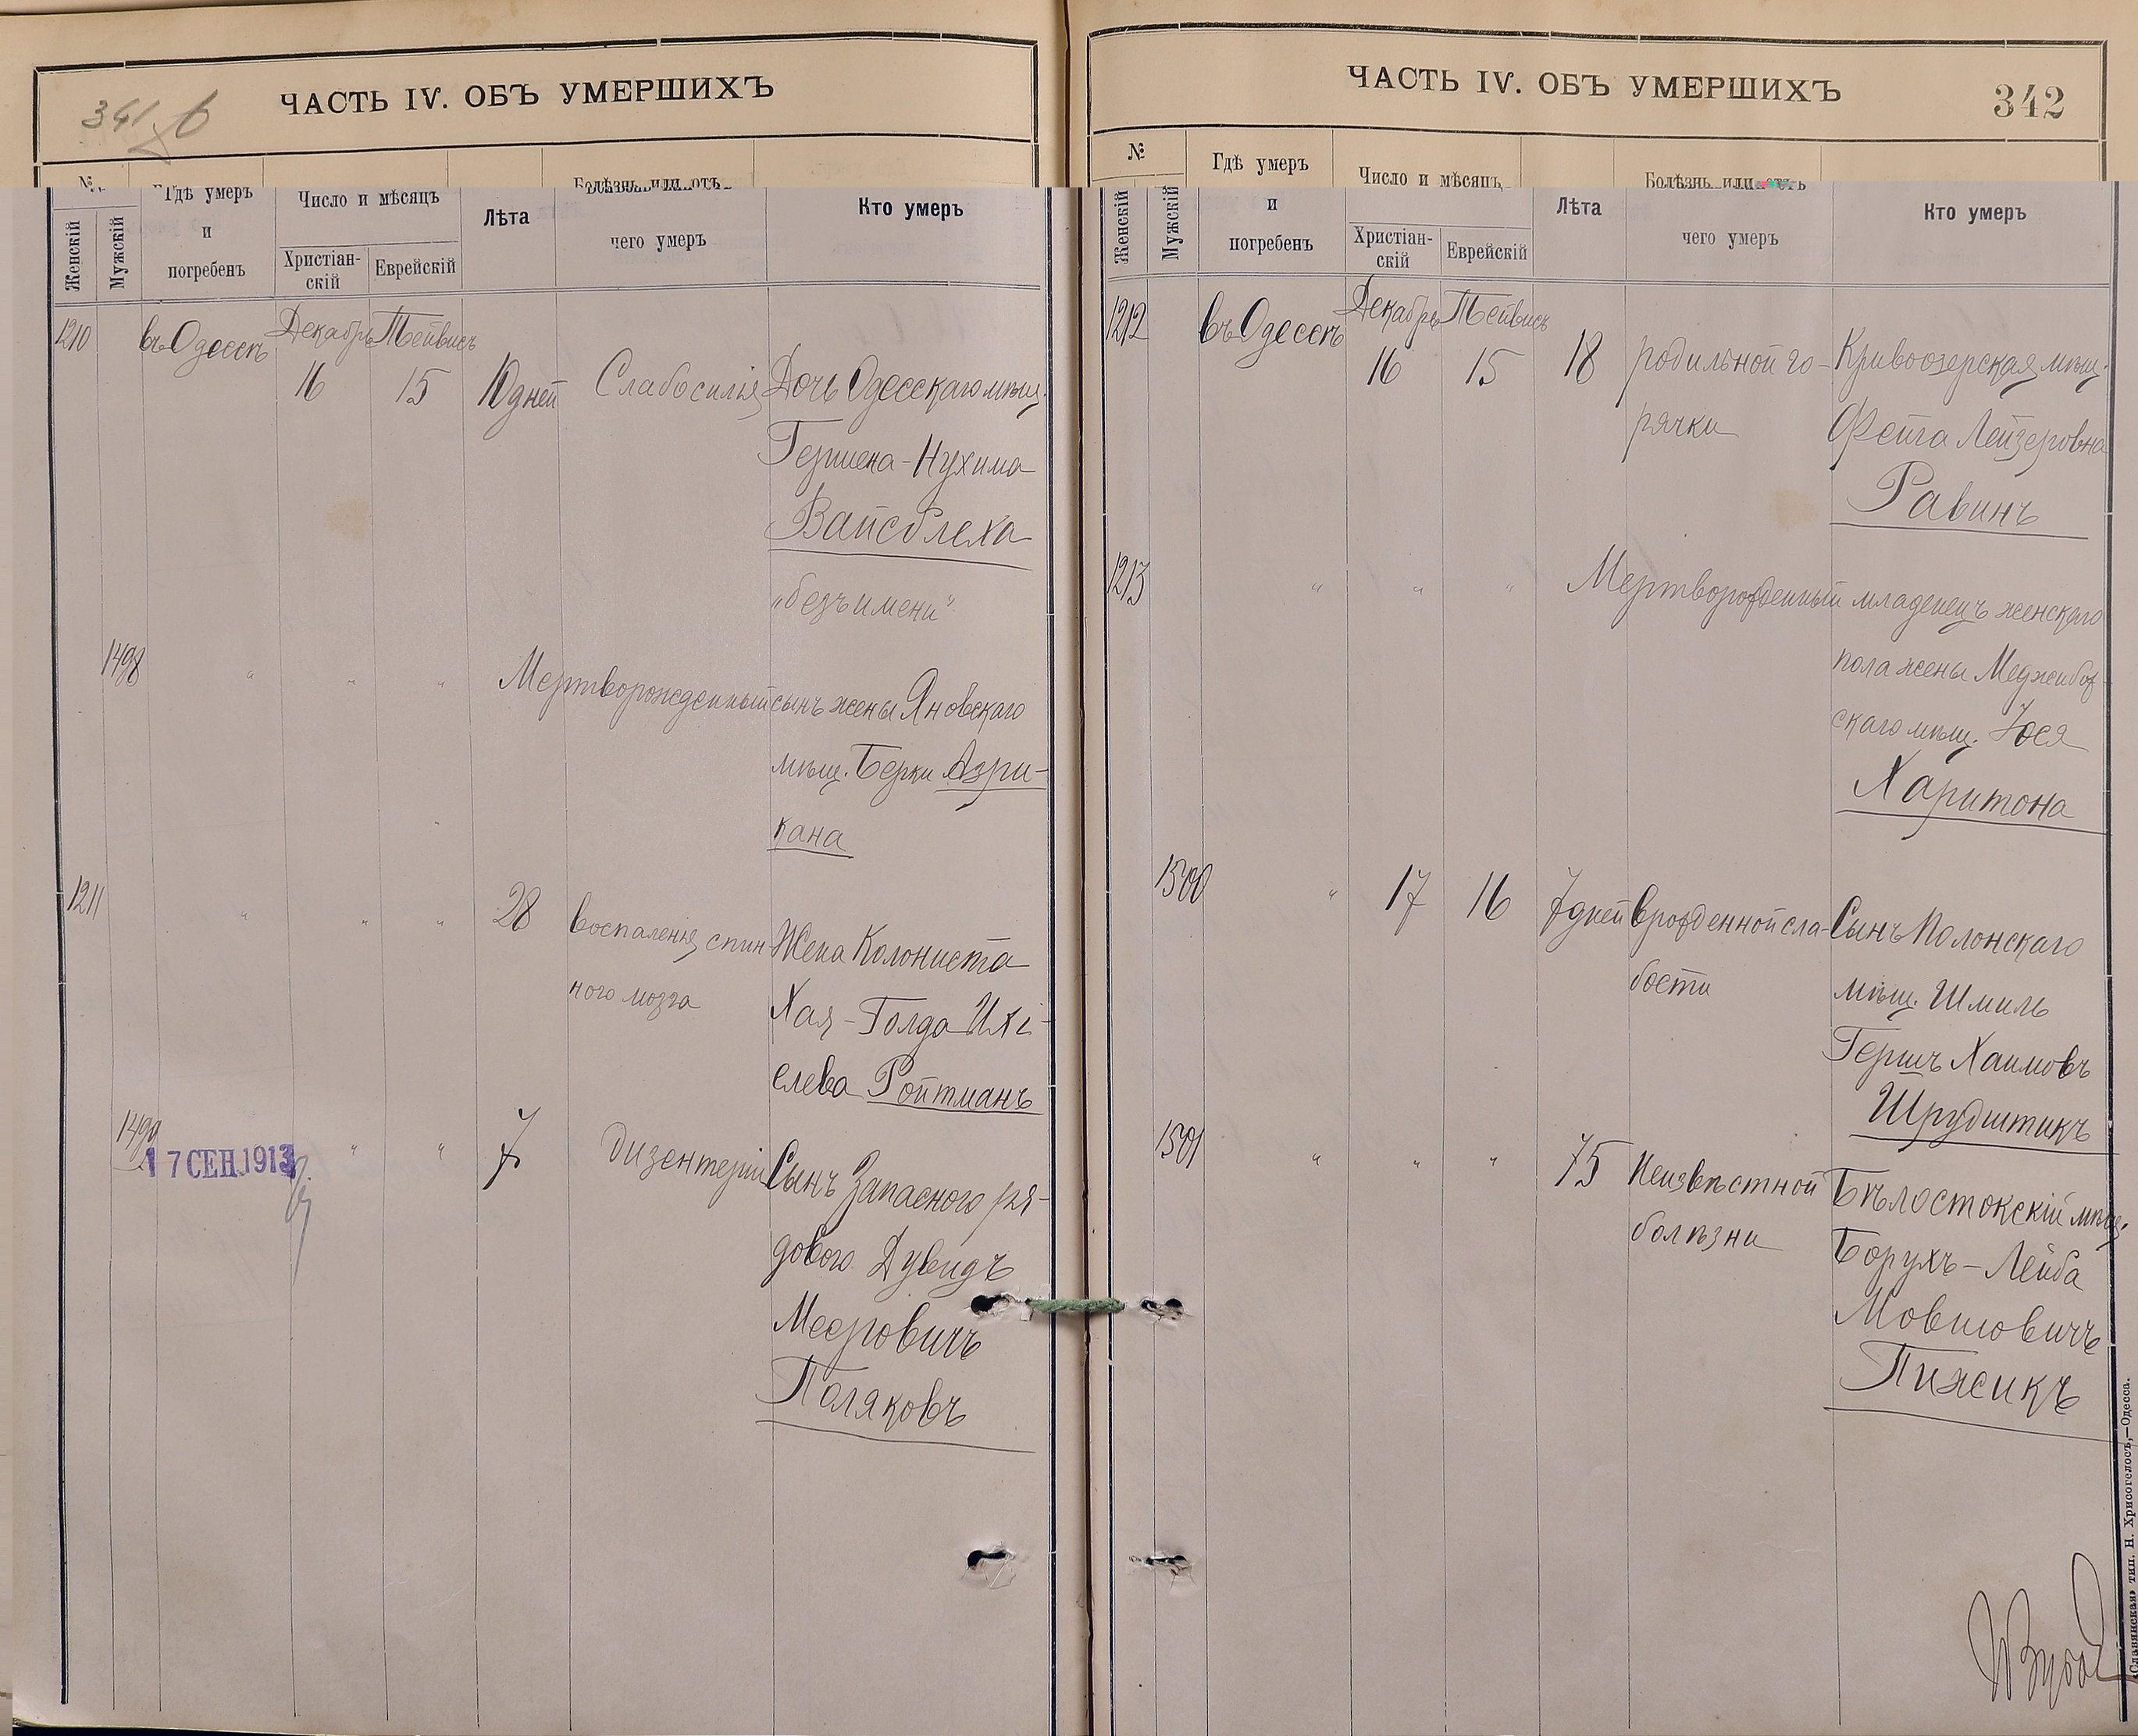 341 б
ЧАСТЬ IV. ОБЪ УМЕРШИХЪ
№
Женскій
Мужскій
Гдѣ умеръ
и
погребенъ
Число и мѣсяцъ
Христіан-
скій
Еврейскій
Лѣта
Болѣзнь или отъ
чего умеръ
Кто умеръ
1210 въ Одессѣ Декабрь Тейвисъ
16 15 10 дней Слабосилія Дочь Одесскаго мѣщ.
Гершена-Нухима
Вайсблеха
„безъ имени“
1498 " " " Мертворожденный сынъ жены Яновскаго
мѣщ. Берки Азри-
кана
1211 " " " 28 воспаленія спин- Жена Колониста
ного мозга Хая-Голда Ихі-
елева Ройтманъ
1499 " " 7 дизентеріи Сынъ Запасного ря-
17 СЕН. 1913
дового Дувидъ
Мееровичъ
Поляковъ
ЧАСТЬ IV. ОБЪ УМЕРШИХЪ
342
№
Женскій
Мужскій
Гдѣ умеръ
и
погребенъ
Число и мѣсяцъ
Христіан-
скій
Еврейскій
Лѣта
Болѣзнь или отъ
чего умеръ
Кто умеръ
1212 въ Одессѣ Декабрь Тейвисъ
16 15 18 родильной го- Кривоозерская мѣщ.
рячки Фейга Лейзеровна
Равинъ
1213 " " " Мертворожденный младенецъ женскаго
пола жены Меджибож-
скаго мѣщ. Іося
Харитона
1500 " 17 16 7 дней врожденной сла- Сынъ Полонскаго
бости мѣщ. Шмиль
Гершъ Хаимовъ
Шрудштикъ
1501 " " " 75 Неизвѣстной Бѣлостокскій мѣщ.
болѣзни Борухъ-Лейба
Мовшовичъ
Пижикъ
«Славянская» тип. Н. Хрисогелосъ,—Одесса.